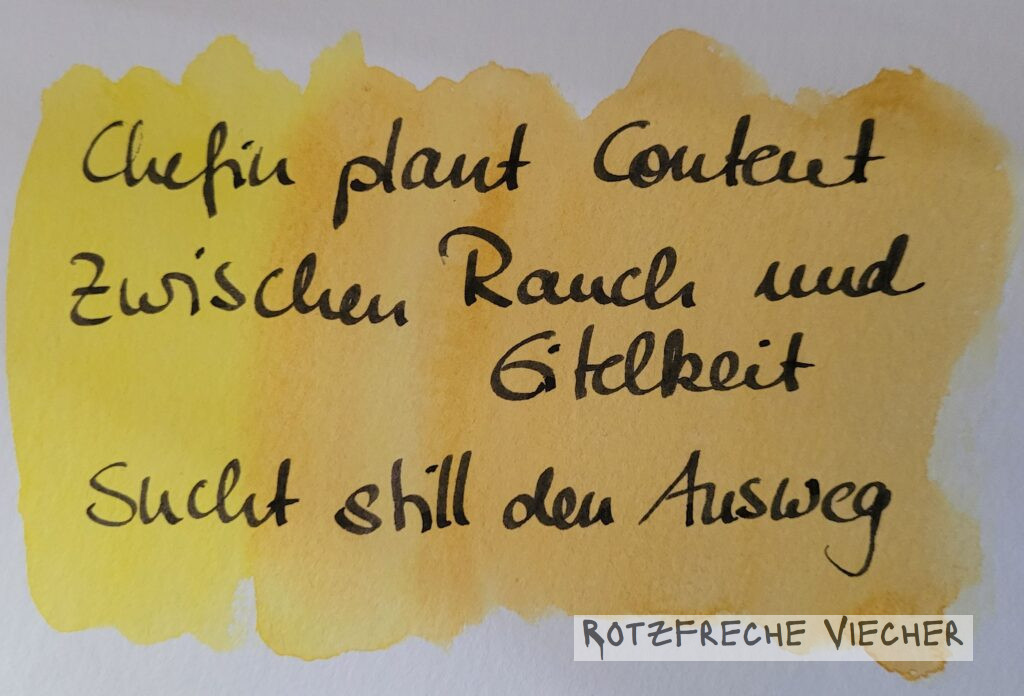 Chefin plant Content
Zwischen Rauch und
Eitelkeit
Sucht still den Ausweg
ROTZFRECHE VIECHER